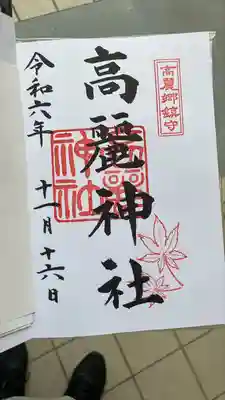 高麗郷鎮守
高麗神社
高麗神社
令和六年
十一月十六日